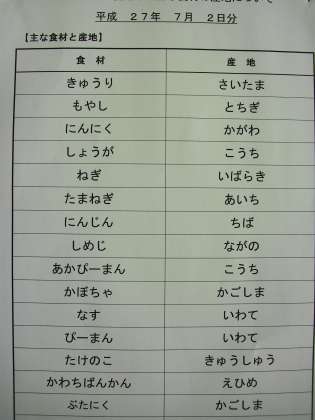 平成 27年 7月 2日分
【主な食材と産地】
食 材 産 地
きゅうり さいたま
もやし とちぎ
にんにく かがわ
しょうが こうち
ねぎ いばらき
たまねぎ あいち
にんじん ちば
しめじ ながの
あかぴーまん こうち
かぼちゃ かごしま
なす いわて
ぴーまん いわて
たけのこ きゅうしゅう
かわちばんかん えひめ
ぶたにく かごしま